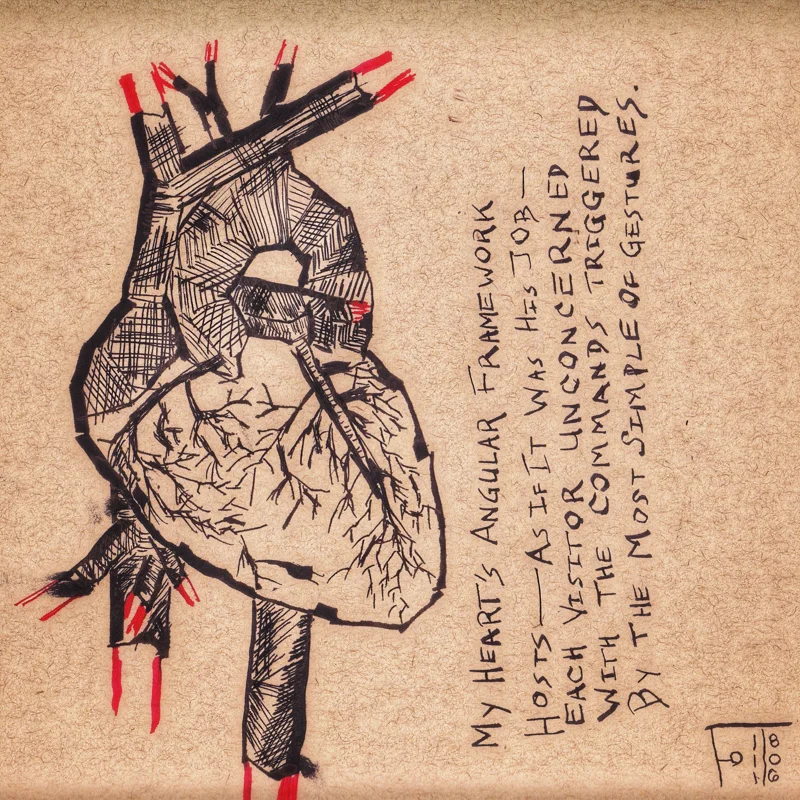 MY HEART'S ANGULAR FRAMEWORK
HOSTS — AS IF IT WAS HIS JOB —
EACH VISITOR UNCONCERNED
WITH THE COMMANDS TRIGGERED
BY THE MOST SIMPLE OF GESTURES.